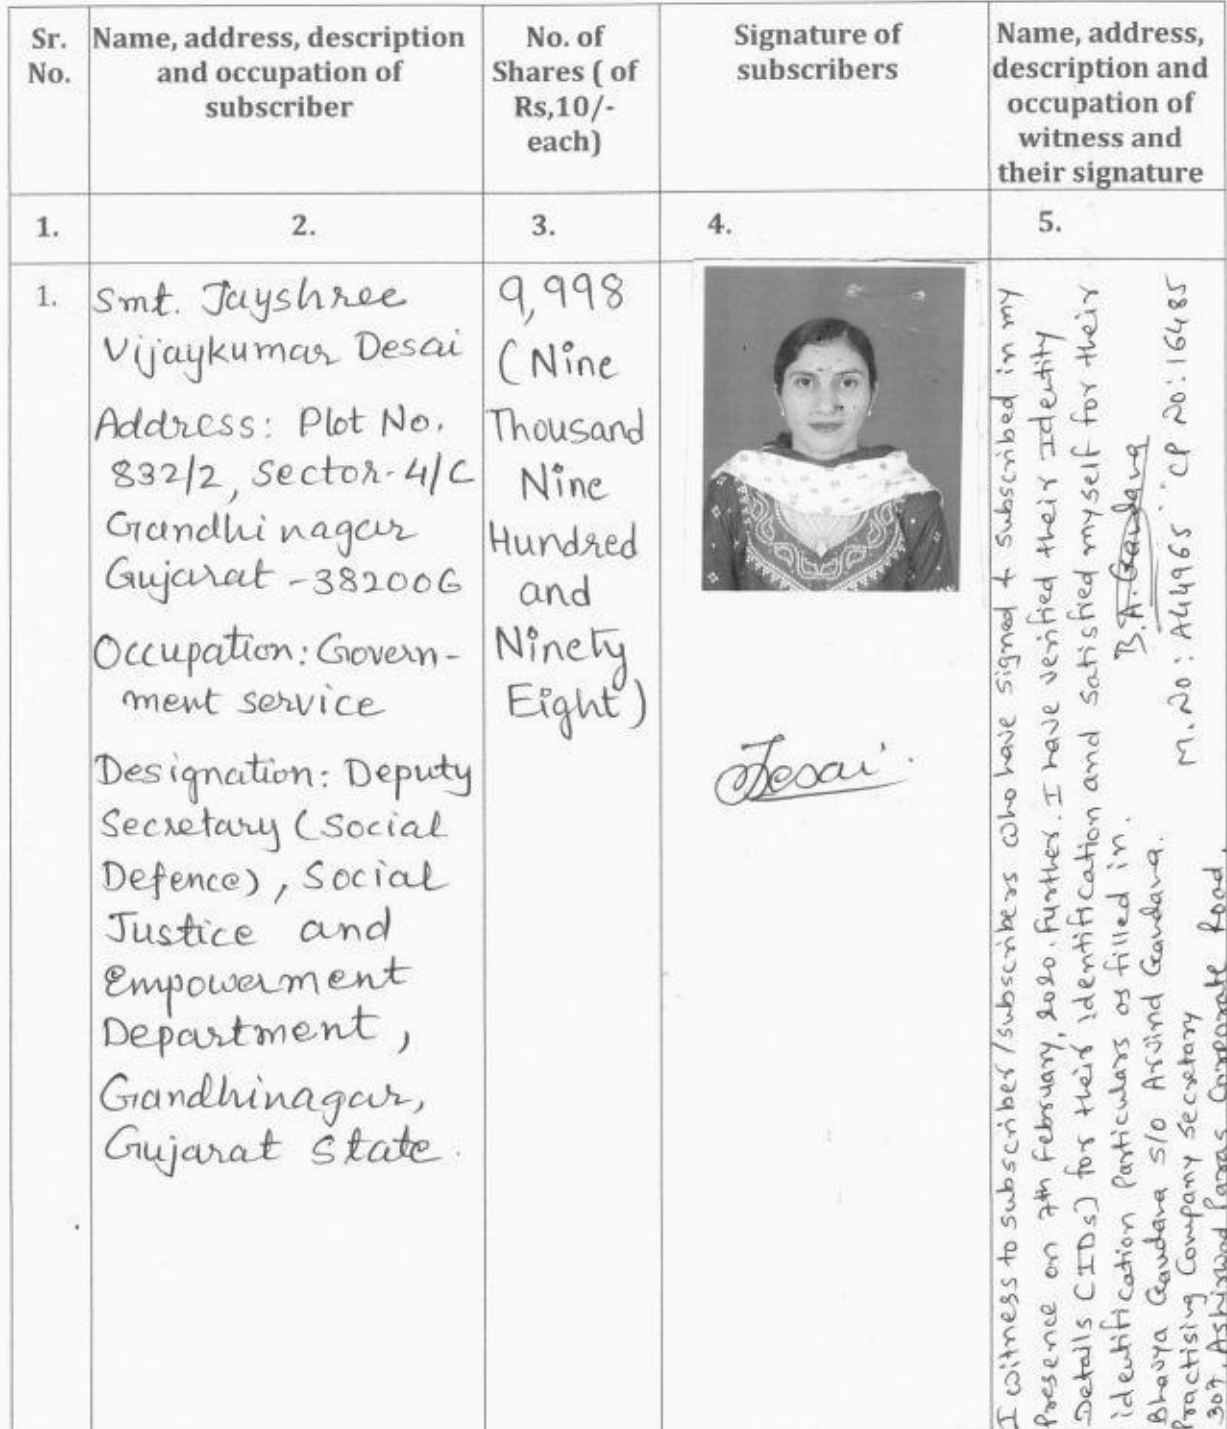 Sr.
No.
Name, address, description
and occupation of
subscriber
No. of
Shares ( of
Rs,10/-
each)
Signature of
subscribers
Name, address,
description and
occupation of
witness and
their signature
1.
2.
3.
4.
5.
1.
Smt. Jayshree
Vijaykumar Desai
Address: Plot No.
832/2, Sector-4/C
Gandhinagar
Gujarat -382006
Occupation: Govern-
ment service
Designation: Deputy
Secretary (Social
Defence), Social
Justice and
Empowerment
Department,
Gandhinagar,
Gujarat State.
9,998
(Nine
Thousand
Nine
Hundred
and
Ninety
Eight)
Desai
I witness to subscriber/subscribers who have signed & subscribed in my
Presence on 7th February, 2020. Further. I have verified their Identity
Details (IDs) for their identification and satisfied myself for their
identification Particulars as filled in.
B.A. Gandana
Bhavya Gandana S/O Arvind Gandana.
M.NO: A44965 CP NO: 16485
Practising Company Secretary
307, Ashirwad Paras Corporate Road,